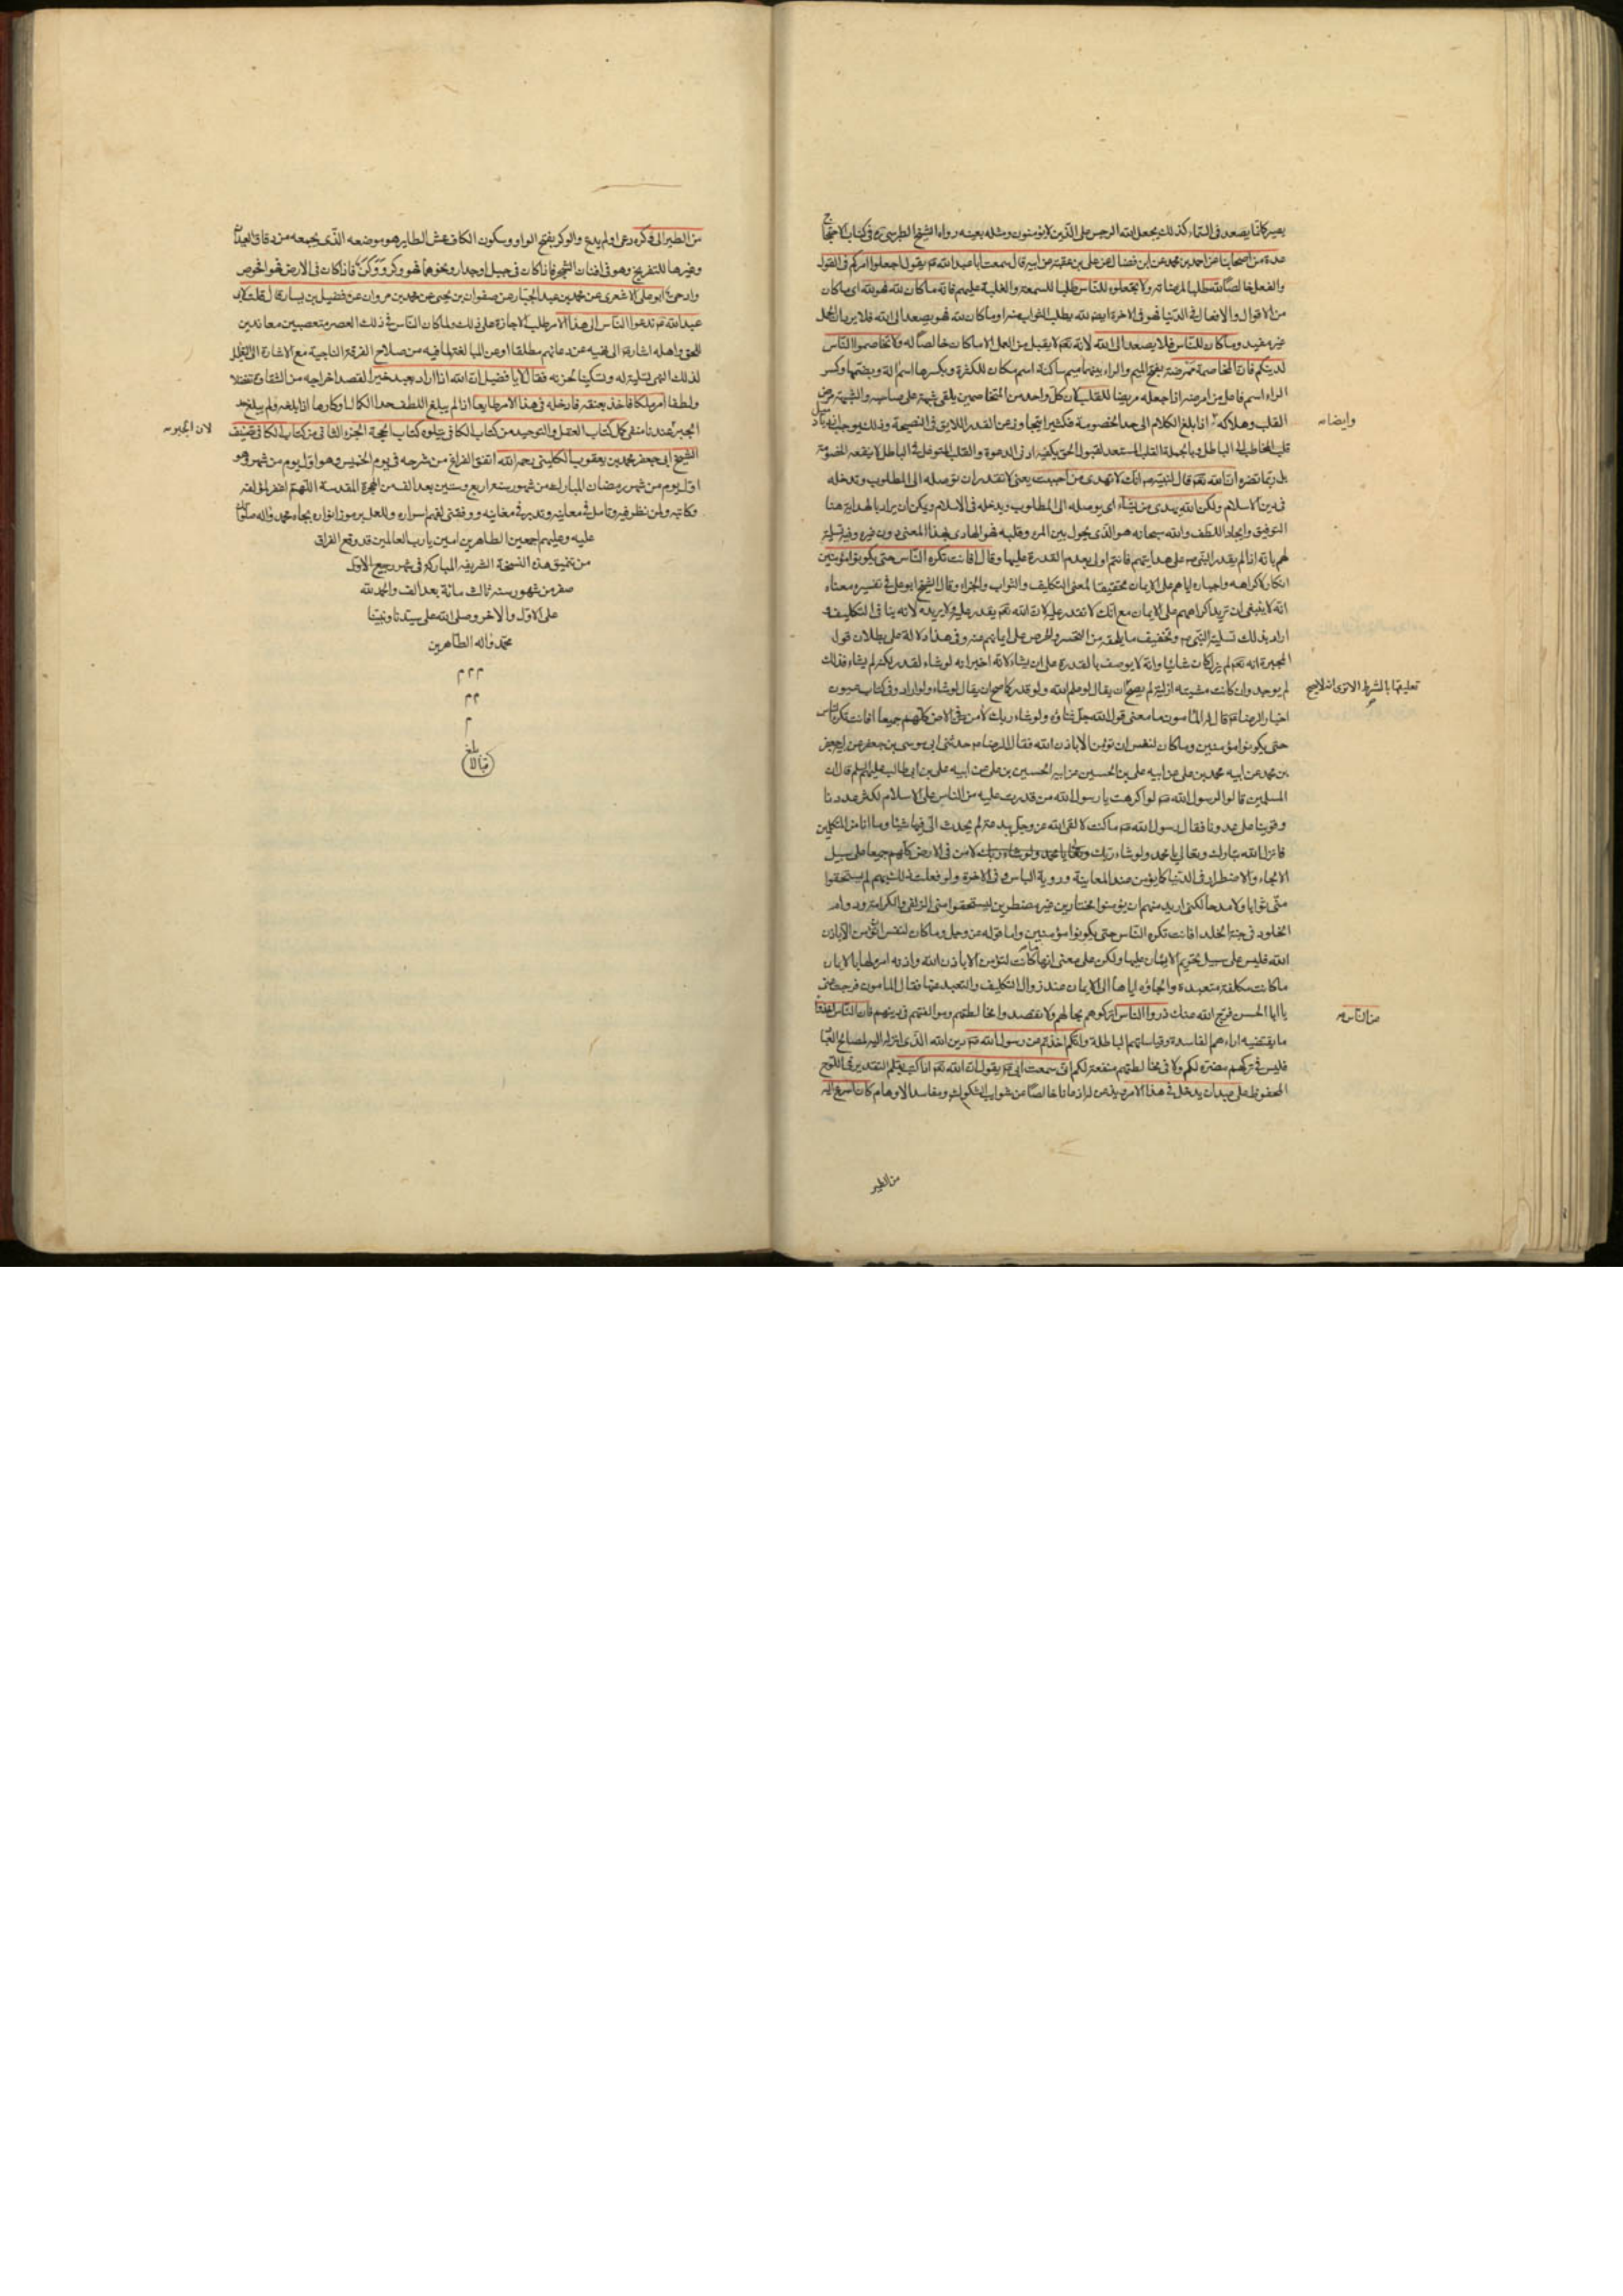 يصير كانّما يصعد فى السّماء كذلك يجعل الله الرجس على الذّين لا يؤمنون ومثله بعينه رواه الشيخ الطبرسى ره فى كتاب الاحتجاج
عدة من اصحابنا عن احمد بن محمد عن ابن فضال عن على بن عقبة عن ابيه قال سمعت ابا عبد الله عم يقول اجعلوا امركم فى القول
والفعل خالصًا لله طلبا لمرضاته ولا تجعلوه للنّاس طلبا للسمعة والغلبة عليهم فانّه ما كان لله فهو لله اى ما كان
من الاقوال والافعال فى الدّنيا فهو فى الاخرة ايضا لله يطلب الثواب منه او ما كان لله فهو يصعد الى الله فلا يريد
غير مفيد وما كان للنّاس فلا يصعد الى الله لانّه تعم لا يقبل من العمل الا ما كان خالصًا له ولا تخاصموا النّاس
لدينكم فانّ المخاصمة ممرضة بفتح الميم والراء بينهما ميم ساكنة اسم مكان للكثرة وبكسرها اسم الة وبضمها وكسر
الراء اسم فاعل من امرضه اذا جعله مريضا للقلب لان كلّ واحد من المتخاصمين يلقى شبهة على صاحبه والشبهة مرض
القلب وهلاكه اذا بلغ الكلام الى حد الخصومة فكثيرا يتجاوز عن القدر اللايق فى النصيحة وذلك يوجب
وايضا مه
قلب المخاطب الى الباطل وبالجملة القلب المستعد لقبول الحق يكفيه ادنى الدعوة والقلب المتوغل فى الباطل لا ينفعه الخصومة
بل ربّما تضره انّ الله تعم قال لنبيّه ص انّك لا تهدى من احببت يعنى لا تقدر ان توصله الى المطلوب وتدخله
فى دين الاسلام ولكن الله يهدى من يشآء اى يوصله الى المطلوب ويدخله فى الاسلام ويمكن ان يراد بالهداية هنا
التوفيق وايجاد اللطف والله سبحانه هو الذّى يحول بين المرء وقلبه فهو الهادى بهذا المعنى دون غيره وفيه تسلية
لهم بانّه اذا لم يقدر النّبى ص على هدايتهم فانتم اولى بعدم القدرة عليها وقال افانت تكره النّاس حتى يكونوا مؤمنين
انكار لاكراهه واجباره اياهم على الايمان تحقيقا لمعنى التكليف والثواب والجزاء وقال الشيخ ابو على فى تفسيره معناه
انّه لا ينبغى ان تريد اكراههم على الايمان مع انّك لا تقدر عليه لانّ الله تعم يقدر عليه ولا يريده لانه ينافى التكليف و
اراد بذلك تسلية النّبى ص وتخفيف ما يلحقه من التحسر والحرص على ايمانهم عنه وفى هذا دلالة على بطلان قول
المجبرة انه تعم لم يزل كان شائيا وانّه لا يوصف بالقدرة على ان يشاء لانّه اخبر انه لو شاء لقدر لكنه لم يشاء فلذلك
لم يوجد وان كانت مشيته ازلية لم يصحّ ان يقال لو علم الله ولو قدر كما صح ان يقال لو شاء ولو اراد وفى كتاب عيون
تعليقها بالشرط الا ترى انه لا يصح
اخبار الرضا عم قال له المأمون ما معنى قول الله جل ثناؤه ولو شاء ربك لامن من فى الارض كلّهم جميعا افانت تكره النّاس
حتى يكونوا مؤمنين وما كان لنفس ان تؤمن الا باذن الله فقال الرضا عم حدثنى ابى موسى بن جعفر عن ابيه جعفر
بن محمد عن ابيه محمد بن على عن ابيه على بن الحسين عن ابيه الحسين بن على عن ابيه على بن ابى طالب عليهم السلم قال ان
المسلمين قالوا لرسول الله ص لو اكرهت يا رسول الله من قدرت عليه من النّاس على الاسلام لكثر عددنا
وقوينا على عدونا فقال رسول الله ص ما كنت لالقى الله عز وجل ببدعة لم يحدث الىّ فيها شيئا وما انا من المتكلفين
فانزل الله تبارك وتعالى يا محمد ولو شاء ربك لامن من فى الارض كلهم جميعا على سبيل
الالجاء والاضطرار فى الدّنيا كما يؤمن عند المعاينة وروية الباس فى الاخرة ولو فعلت ذلك بهم لم يستحقوا
منّى ثوابا ولا مدحا لكنى اريد منهم ان يؤمنوا مختارين غير مضطرين ليستحقوا منى الزلفى والكرامة ودوام
الخلود فى جنة الخلد افانت تكره النّاس حتى يكونوا مؤمنين واما قوله عز وجل وما كان لنفس ان تؤمن الا باذن
الله فليس على سبيل تحريم الايمان عليها ولكن على معنى انها ما كانت لتؤمن الا باذن الله واذنه امره لها بالايمان
ما كانت مكلفة متعبدة والجاؤه اياها الى الايمان عند زوال التكليف والتعبد عنها فقال المامون فرجت عنى
يا ابا الحسن فرّج الله عنك ذروا النّاس اتركوهم بحالهم ولا تقصدوا مخالطتهم وموافقتهم فى دينهم فان النّاس اخذوا
عن النّاس مه
ما يقتضيه اراءهم الفاسدة وقياساتهم الباطلة وانكم اخذتم عن رسول الله ص دين الله الذّى انزله اليه لمصالح العباد
فليس فى تركهم مضرة لكم ولا فى مخالطتهم منفعة لكم انّى سمعت ابى عم يقول انّ الله تعم اذا كتب بقلم التقدير فى اللوح
المحفوظ على عبد ان يدخل فى هذا الامر خالصًا من شوايب الشكوك ومفاسد الاوهام كان اسرع اليه
من الطير
من الطير الى وكره دعى او لم يدع والوكر بفتح الواو وسكون الكاف عش الطاير هو موضعه الذّى يجمعه من دقاق العيدان
وغيرها للتفريخ وهو فى افنان الشجر فاذا كان فى جبل او جدار ونحوهما فهو وكر ووكن فاذا كان فى الارض فهو افحوص
وادحى ابو على الاشعرى عن محمد بن عبد الجبّار عن صفوان بن يحيى عن محمد بن مروان عن فضيل بن يسار قال قلت لابى
عبد الله عم ندعوا النّاس الى هذا الامر طلب الاجازة على ذلك ولما كان النّاس فى ذلك العصر متعصبين معاندين
للحق واهله اشار الى نهيه عن دعائهم مطلقا او عن المبالغة لما فيه من صلاح الفرقة الناجية مع الاشارة الى
لذلك النهى تسلية له وتسكينا لحزنه فقال لا يا فضيل انّ الله اذا اراد بعبد خيرا لقصد اخراجه من الشقاوة تفضلا
ولطفا امر ملكا فاخذ بعنقه فادخله فى هذا الامر طايعا اذا لم يبلغ اللطف حد الكمال او كارها اذا بلغه ولم يبلغ حد
الجبر عندنا منفى كمل كتاب العقل والتوحيد من كتاب الكافى ويتلوه كتاب الحجة الجزء الثانى من كتاب الكافى تصنيف
لان الجبر مه
الشيخ ابى جعفر محمد بن يعقوب الكلينى رحمه الله اتفق الفراغ من شرحه فى يوم الخميس وهو اول يوم من شهر وهو
اول يوم من شهر رمضان المبارك من شهور سنة اربع وستين بعد الف من الهجرة المقدسة اللهمّ اغفر لمؤلفه
وكاتبه ولمن نظر فيه وتامل فى معانيه وتدبر فى مغانيه ووفقنى لفهم اسراره وللعلم برموز انواره بجاه محمد واله صلوات
عليه وعليهم اجمعين الطاهرين امين يا رب العالمين قد وقع الفراق
من تنميق هذه النسخة الشريفة المباركة فى شهر ربيع الاول
صفر من شهور سنه ثالث مائة بعد الف والحمد لله
على الاول والاخر وصلى الله على سيّدنا ونبيّنا
محمّد واله الطّاهرين
م م م
م م
م
بلغ
قبالا